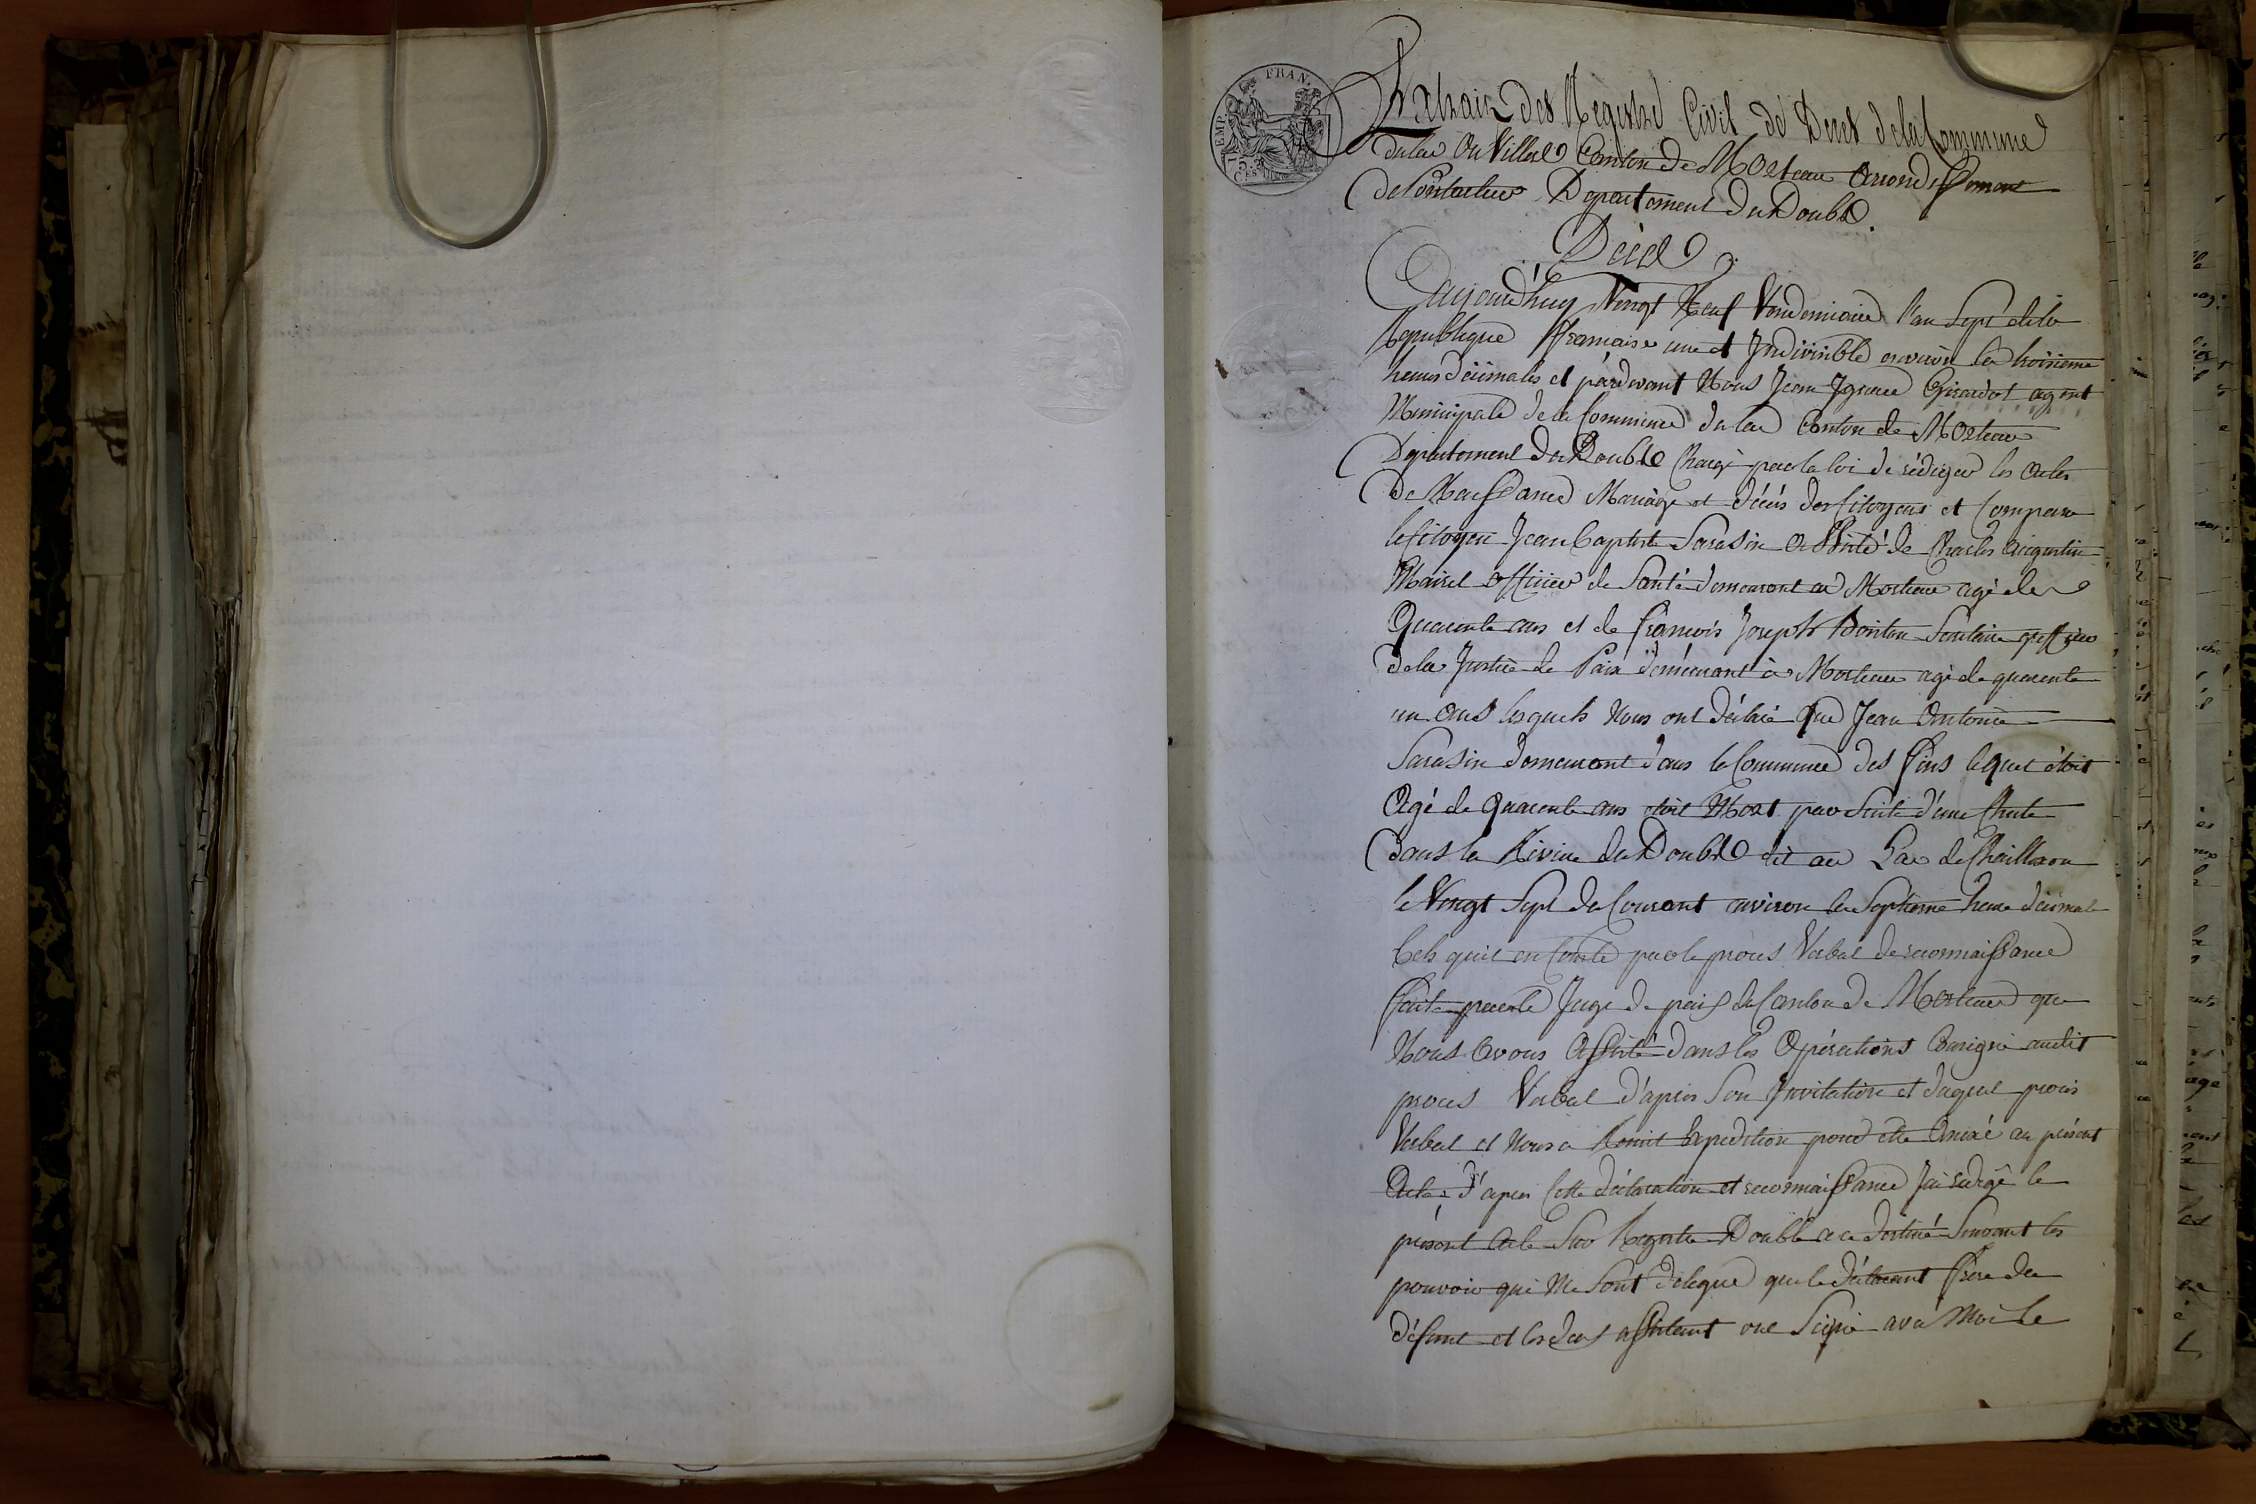 EMP. FRAN.
Extrait des Registre Civil de Decet de la Commune
du lac ou Villeré Canton de Morteau arrondissement
de Pontarlier Departement du Doubs.
Décès
Cejourd'huy Vingt Neuf Vendemiaire l'an Sept de la
Republique francaise une et Indivisible environ la troisieme
heure décimales et pardevant Nous Jean Ignace Girardot agent
Municipale de la Commune du lac Canton de Morteau
Departement du Doubs Chargé par la loi de rédiger les actes
de Naissance Mariage et décès des Citoyens et Comparu
le Citoyen Jean Baptiste Sarasin assisté de Charles Augustin
Mairel officier de Santé demeurant a Morteau agé de
Quarente ans et de francois Joseph Boiston Seculaire greffier
de la Justice de Paix demeurant à Morteau agé de quarente
un ans lesquels Nous ont déclaré que Jean Antoine
Sarasin demeurant dans la Commune des fins lequel étoit
Agé de Quarente ans étoit Mort par Suite d'une Chute
dans la Riviere du Doubs dit au Lac de Chaillxon
le Vingt Sept du Courant environ la Septieme heure décimale
tels quil en Conste par le procès Verbal de reconnaissance
fait par le Juge de paix du Canton de Morteau que
Nous avons assisté dans les Opérations Consigné audit
proces Verbal d'apres Son Invitation et duquel procès
Verbal et Nous a Remit Expedition pour être Anexé au présent
Acte, d'apres Cette déclaration et reconnaissance J'ai redigé le
présent acte Sur Registre Double a ce destiné Suivant les
pouvoir qui Me Sont délegué que le déclarant frere du
défunt et les deux assistant ont Signé avec Moi le